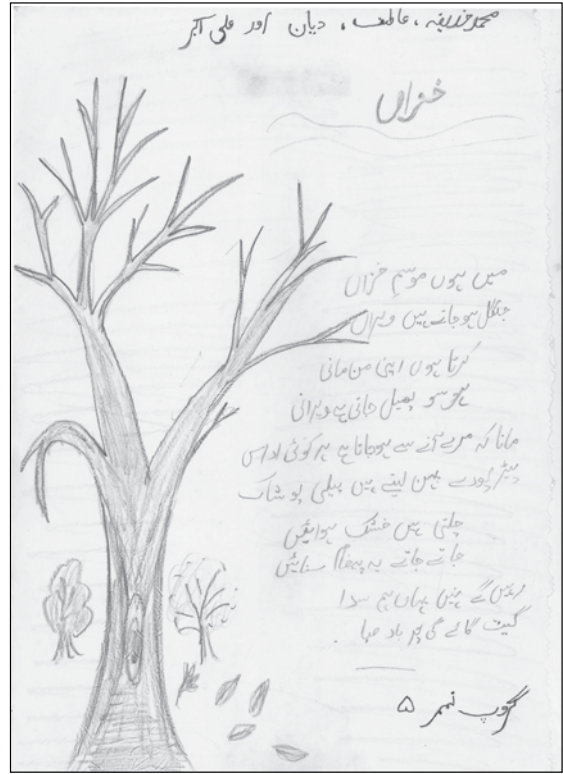 محمد حذیفہ، عاطف، دیان اور علی اکبر
خزاں
میں ہوں موسمِ خزاں
جنگل ہو جاتے ہیں ویراں
کرتا ہوں اپنی من مانی
ہر سو پھیل جاتی ہے ویرانی
مانا کہ مرے آنے سے ہو جاتا ہے ہر کوئی اداس
پیڑ پودے پہن لیتے ہیں پیلی پوشاک
چلتی ہیں خشک ہوائیں
جاتے جاتے یہ پیغام سنائیں
رہیں گے نہیں یہاں ہم سدا
گیت گائے گی پھر باد صبا
گروپ نمبر ۵